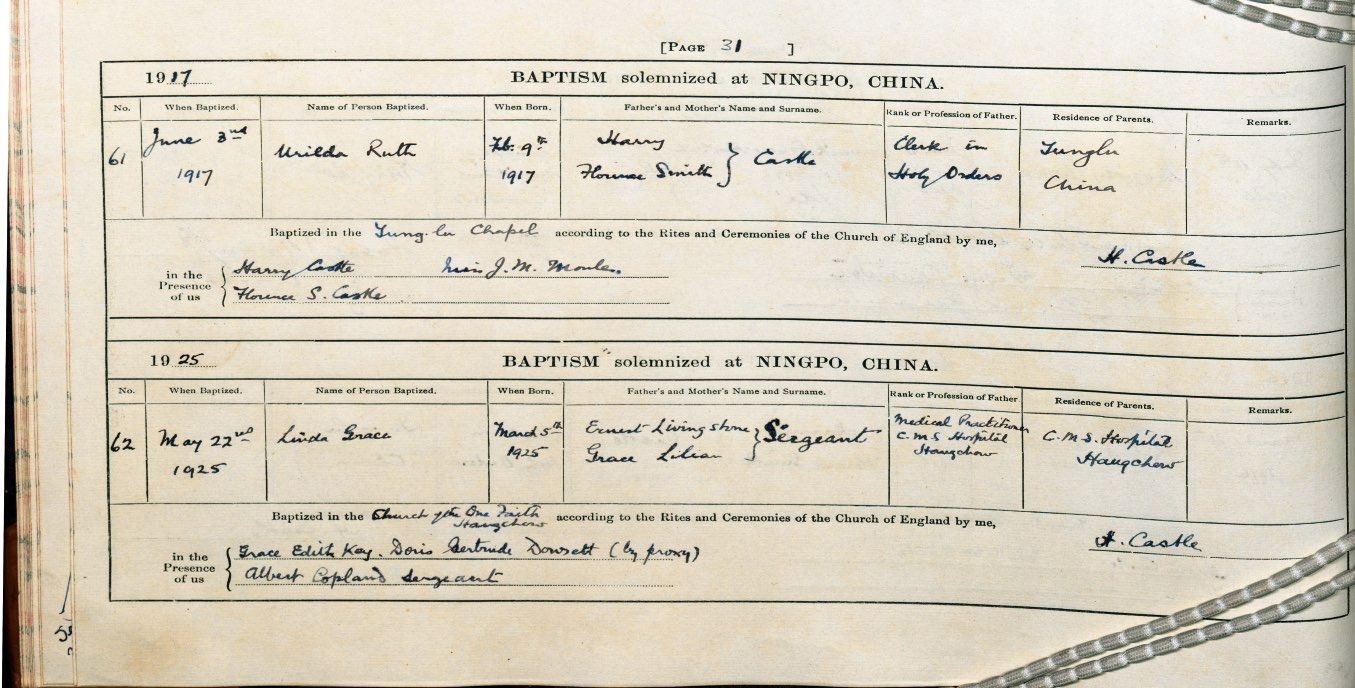 [PAGE 31 ]
1917 BAPTISM solemnized at NINGPO, CHINA.
No. When Baptized. Name of Person Baptized. When Born. Father's and Mother's Name and Surname. Rank or Profession of Father. Residence of Parents. Remarks.
61 June 3rd Urilda Ruth Feb. 9th Harry Castle Clerk in Tunglu
1917 1917 Florence Smith Holy Orders China
Baptized in the Tung-lu Chapel according to the Rites and Ceremonies of the Church of England by me,
H. Castle
in the Presence of us
Harry Castle Miss J. M. Moule.
Florence S. Castle
1925 BAPTISM solemnized at NINGPO, CHINA.
No. When Baptized. Name of Person Baptized. When Born. Father's and Mother's Name and Surname. Rank or Profession of Father. Residence of Parents. Remarks.
62 May 22nd Linda Grace March 5th Ernest Livingstone Sergeant Medical Practitioner C.M.S. Hospital
1925 1925 Grace Lilian C.M.S Hospital Hangchow
Hangchow
Baptized in the Church of the One Faith according to the Rites and Ceremonies of the Church of England by me,
Hangchow
H. Castle
in the Presence of us
Grace Edith Kay. Doris Gertrude Dowsett (by proxy)
Albert Copland Sergeant